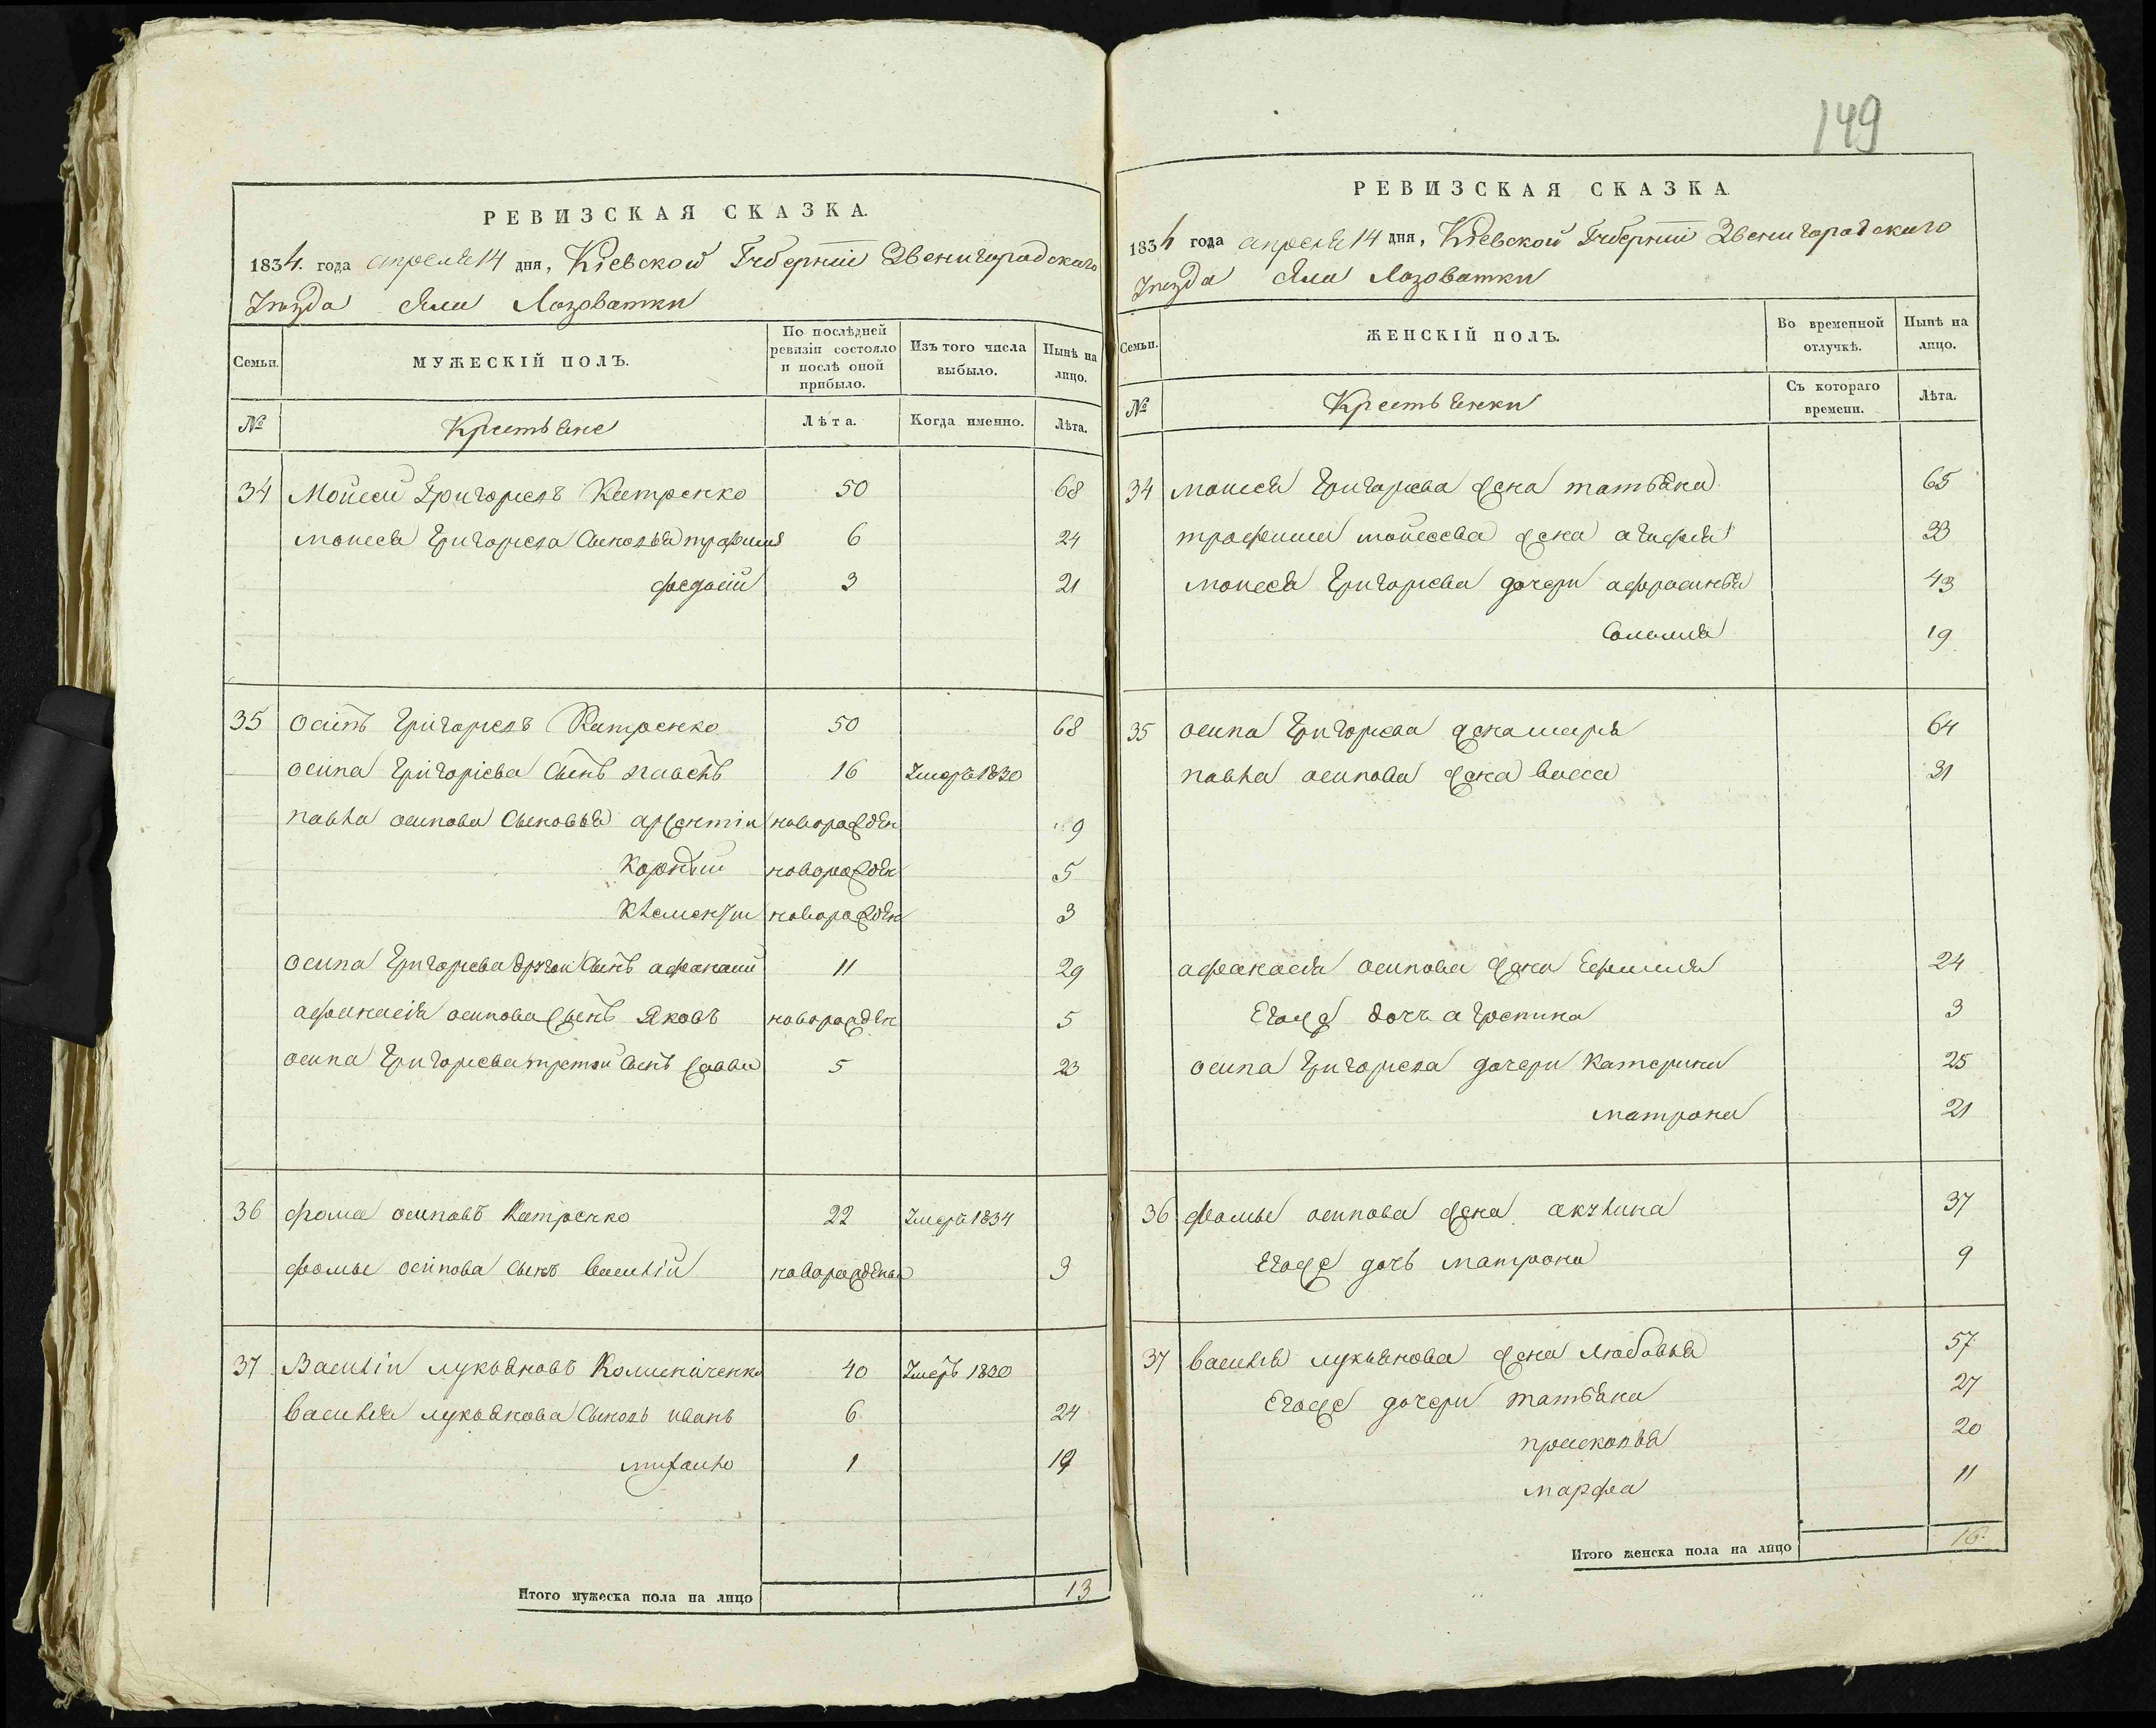 149
РЕВИЗСКАЯ СКАЗКА.
1834. года апреля 14 дня, Кіевской Губерніи Звенигородскаго
Уезда Села Лозоватки
Семьи. МУЖЕСКІЙ ПОЛЪ. По послѣдней ревизіи состояло и послѣ оной прибыло. Изъ того числа выбыло. Нынѣ на лицо.
№ Крестьяне Лѣта. Когда именно. Лѣта.
34 Мойсей Григорьевъ Катренко 50 68
моисея Григорьева Сыновья трофимъ 6 24
федосій 3 21
35 Осипъ Григорьевъ Катренко 50 68
осипа Григорієва Сынъ павелъ 16 Умеръ 1830
павла осипова Сыновья арсентіи новорожден 9
Корнѣй новорожден 5
Клементи новорожден 3
осипа Григорьева другой Сынъ афанасий 11 29
афанасія осипова Сынъ Яковъ новорожден 5
осипа Григорьева третий Сынъ Савва 5 23
36 фома осиповъ Катренко 22 Умеръ 1834
фомы осипова сынъ Василій новорожденъ 3
37 Василіи лукьяновъ Колиениченко 40 Умеръ 1830
Василия лукьянова Сыновъ иванъ 6 24
михаило 1 19
Итого мужеска пола на лицо 13
РЕВИЗСКАЯ СКАЗКА
1834 года апреля 14 дня, Кіевской Губерніи Звенигородскаго
Уезда Села Лозоватки
Семьи. ЖЕНСКІЙ ПОЛЪ. Во временной отлучкѣ. Нынѣ на лицо.
№ Крестьянки Съ котораго времени. Лѣта.
34 моисея Григорьева жена татьяна 65
трофима мойсеева жена агафия 33
моисея Григорьева дочери афросинья 43
Соломия 19
35 осипа Григорьева жена марья 64
павла осипова жена васса 31
афанасия осипова жена Ефимия 24
Егож дочь агрепина 3
осипа Григорьева дочери Катерина 25
матрона 21
36 фомы осипова жена акулина 37
Егоже дочь матрона 9
37 Василия лукьянова жена Любовья 57
Егоже дочери татьяна 27
прасковья 20
марфа 11
Итого женска пола на лицо 16.